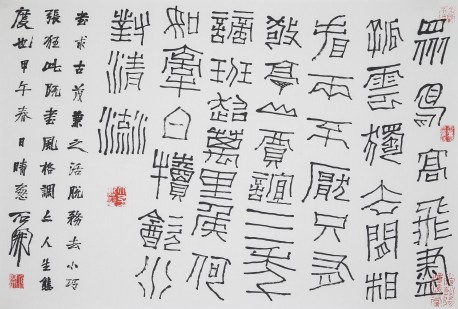 眾鳥高飛盡
孤雲獨去閒相
看兩不厭只有
敬亭山賈誼三年
謫班超萬里侯何
如牽白犢飲水
對清流
書求古茂兼之活脱務去小巧
張狂此既書風格調亦人生態
度也甲午春日晴窗 石開